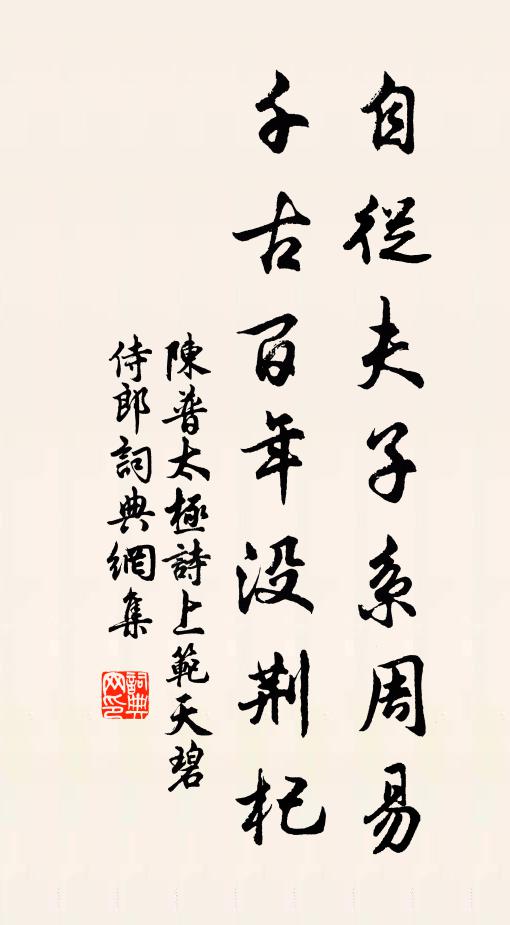 自從夫子系周易
千古百年没荆杞
陳普太極詩上範天碧
侍郎詞典網集
詞典網印